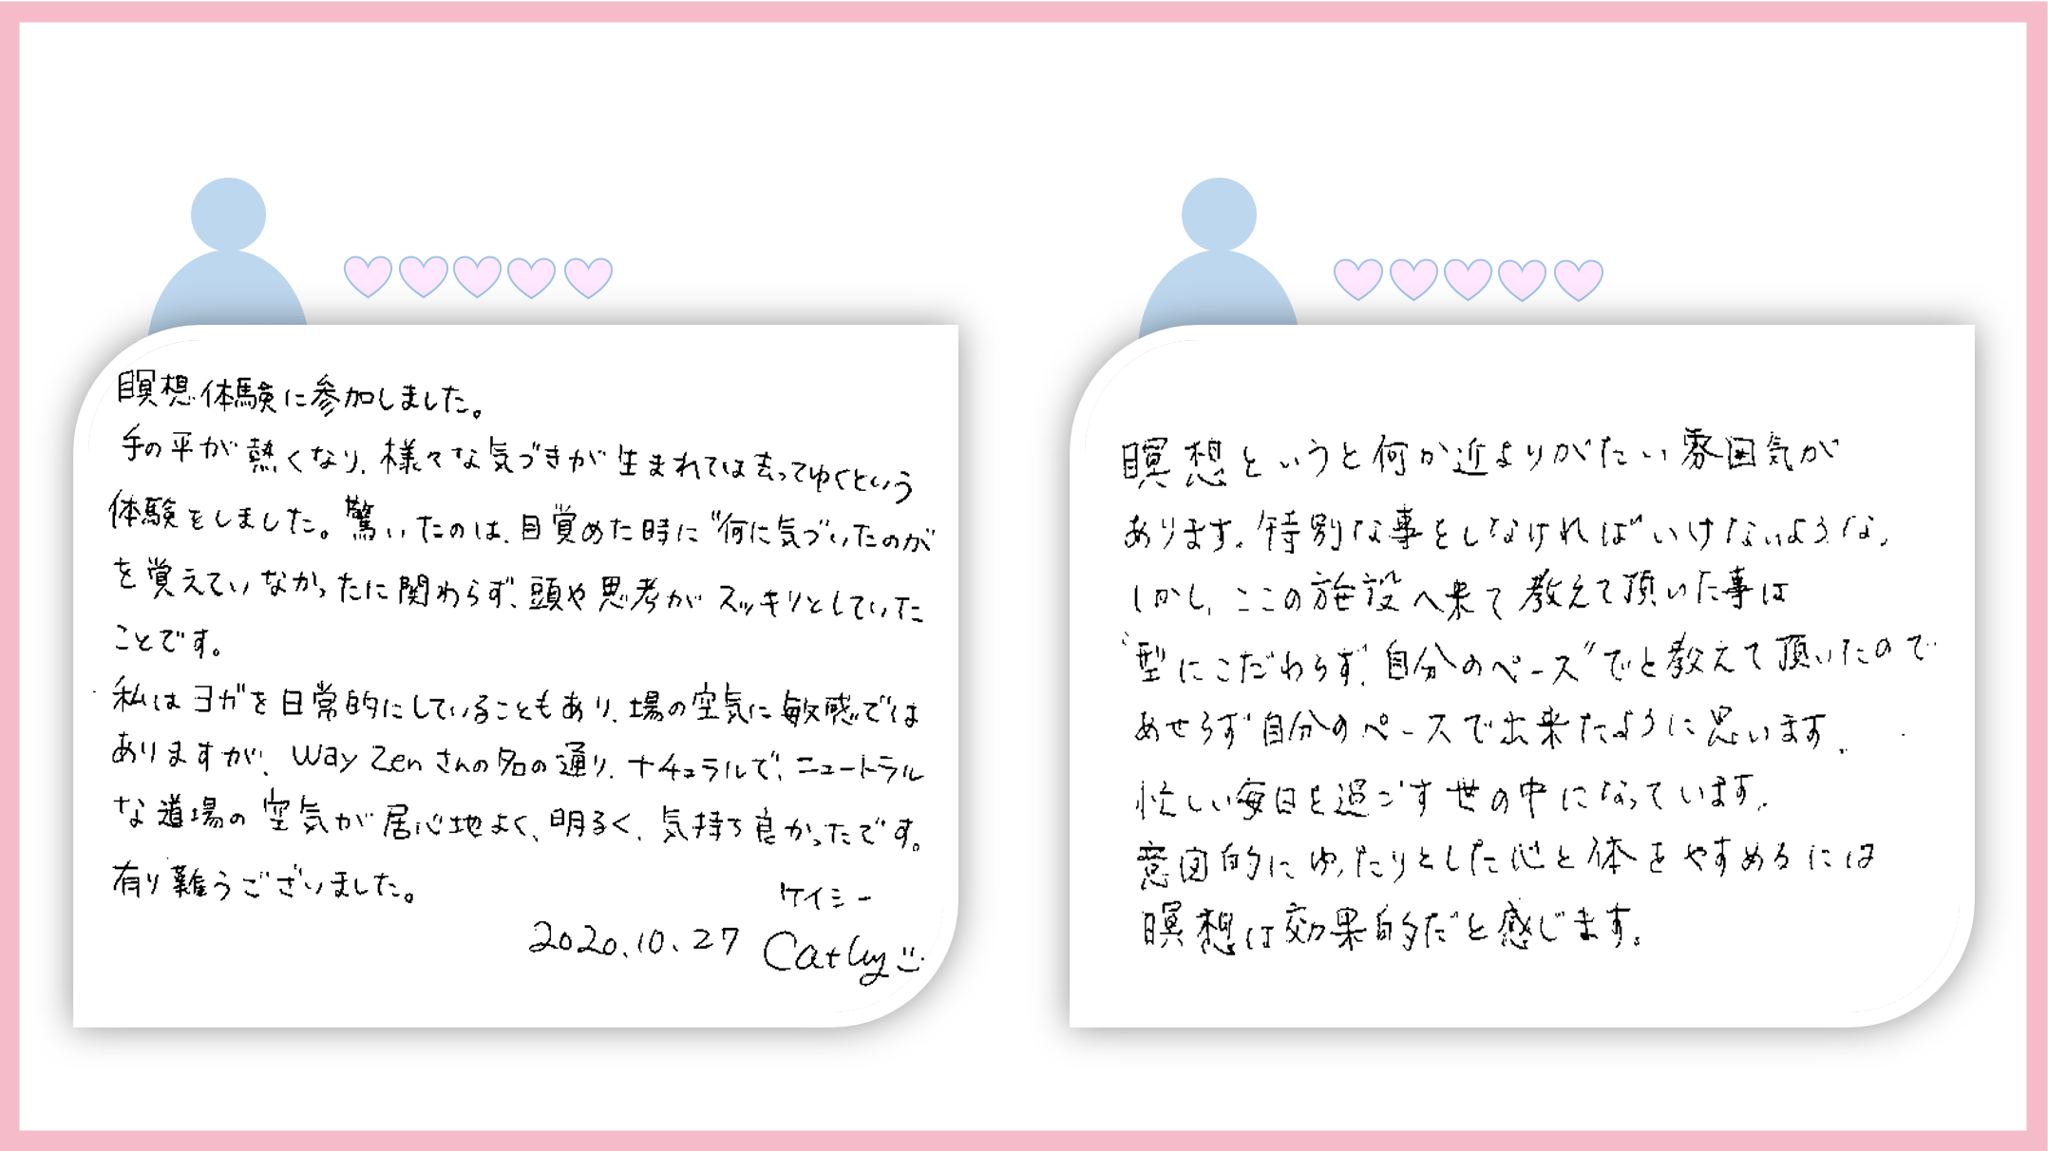 瞑想体験に参加しました。
手の平が熱くなり、様々な気づきが生まれては去ってゆくという
体験をしました。驚いたのは、目覚めた時に"何に気づいたのか"
を覚えていなかったに関わらず、頭や思考がスッキリとしていた
ことです。
私はヨガを日常的にしていることもあり、場の空気に敏感では
ありますが、Way Zenさんの名の通り、ナチュラルで、ニュートラル
な道場の空気が居心地よく、明るく、気持ち良かったです。
有り難うございました。
ケイシー
2020.10.27 Cathy
瞑想というと何か近よりがたい雰囲気が
あります。特別な事をしなければいけないような。
しかし、ここの施設へ来て教えて頂いた事は
"型にこだわらず、自分のペース"でと教えて頂いたので
あせらず自分のペースで出来たように思います。
忙しい毎日を過ごす世の中になっています。
意図的にゆったりとした心と体をやすめるには
瞑想は効果的だと感じます。